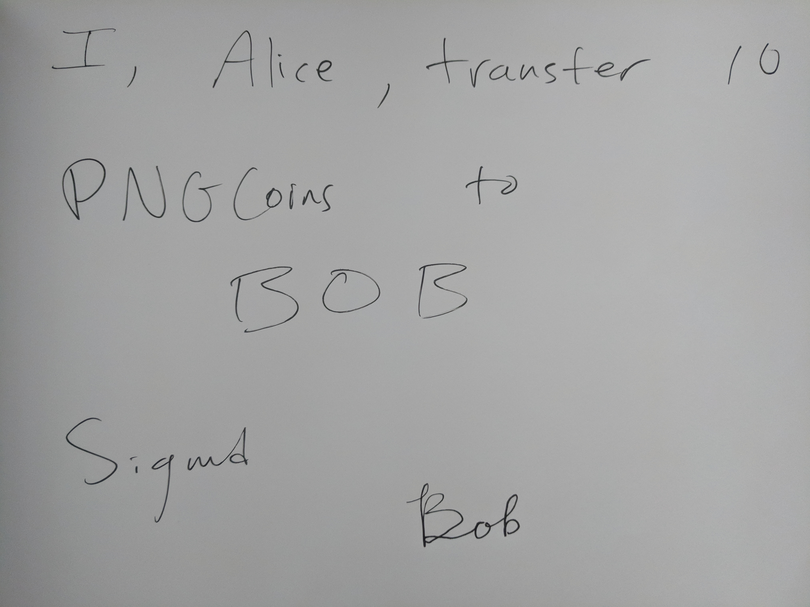 I, Alice, transfer 10
PNGCoins to
BOB
Signed
Bob